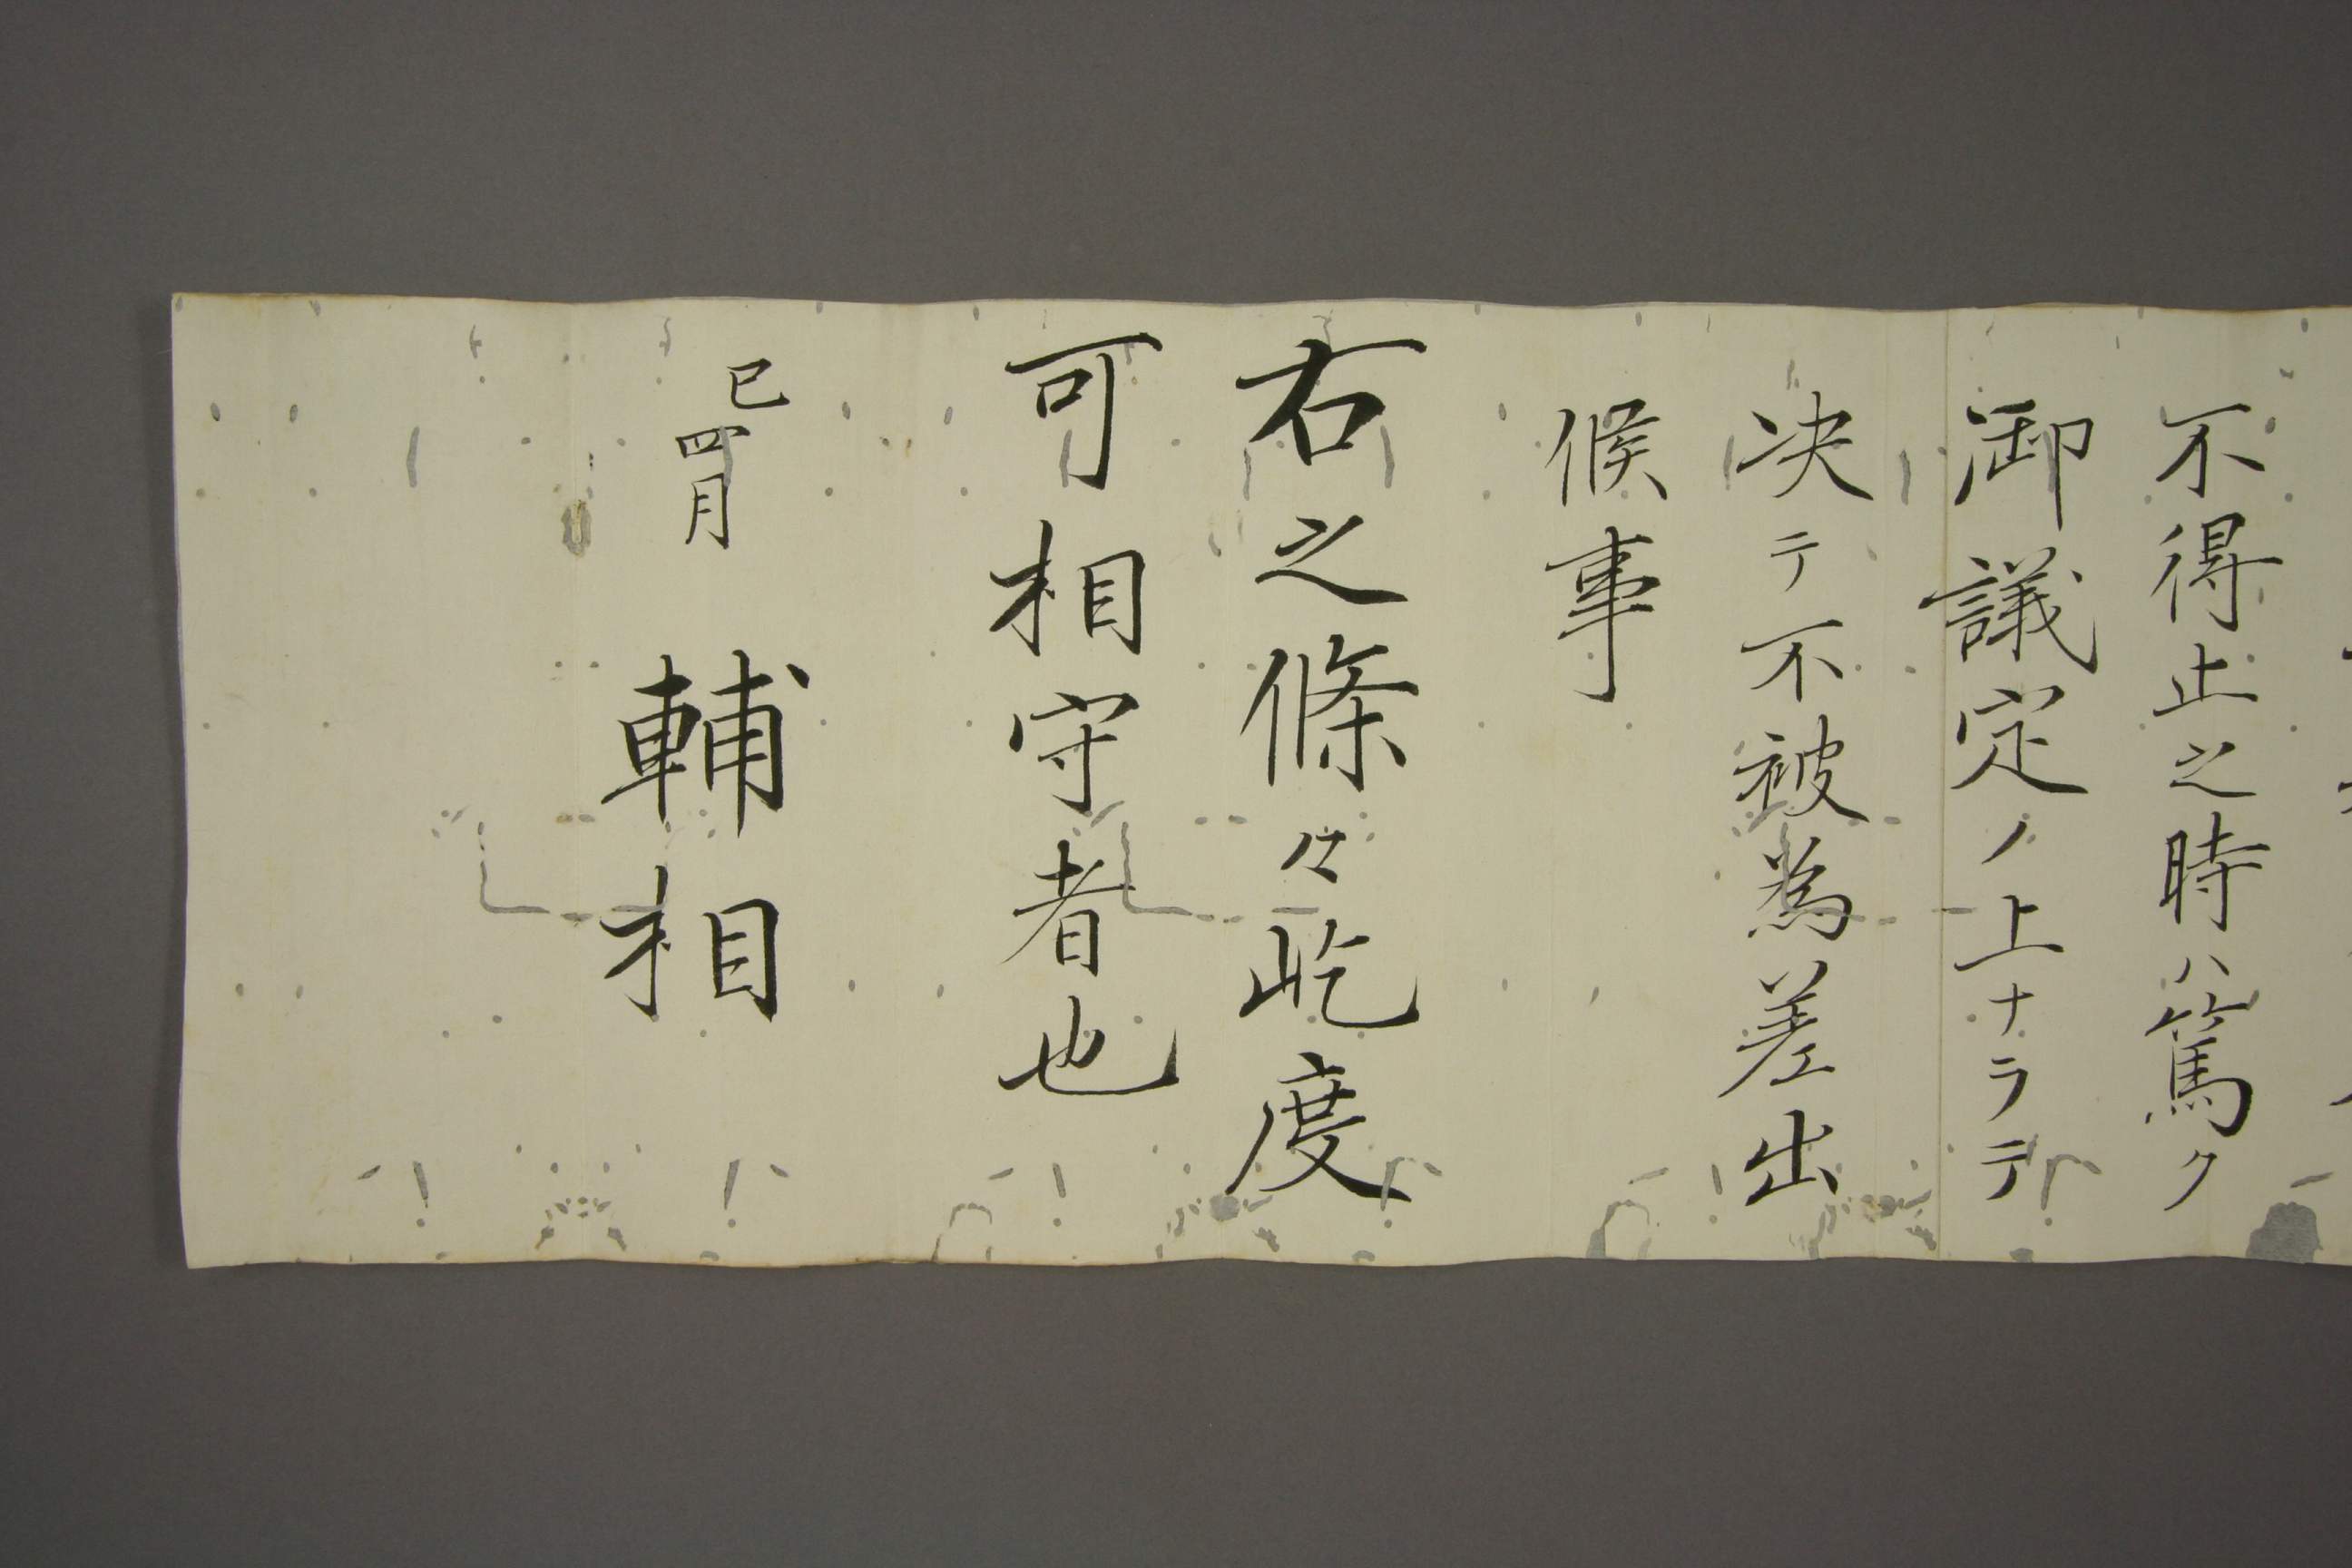 不得止之時ハ篤ク
御議定ノ上ナラテ
决テ不被為差出
候事
右之條々屹度
可相守者也
巳四月
輔相